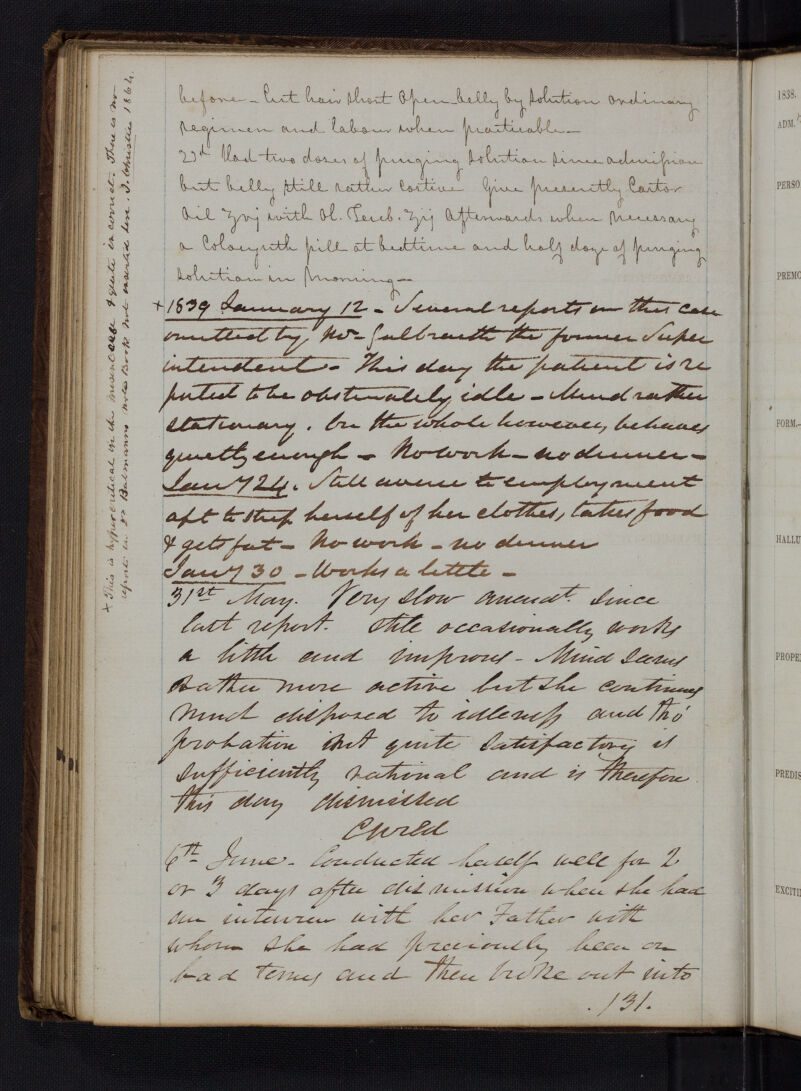 before - Cut hair short Open belly by solution ordinary
regimen and labour when practicable -
22d Had two doses of purging solution since admission
but belly still rather costive Give presently Castor
Oil ʒvj with Ol. Tereb. ʒij Afterwards when necessary
a Colocynth pill at bedtime and half dose of purging
solution in morning -
+ 1839 January 12 - Several reports on this case
omitted by Mr Galbraith the former Super
intendent - This day the patient is re
puted to be obstinately idle - Mind rather
stationary. On the whole however, behaves
quietly enough - No work - no dinner -
Jany 24. Still averse to employment
apt to strip herself of her clothes, takes food
& gets fat - No work - no dinner
Jany 30 - Works a little -
31st May. Very slow amendt. since
last report. Still occasionally works
a little and improves - Mind seems
rather more active but she continues
much disposed to idleness and tho'
probation not quite satisfactory is
sufficiently rational and is therefore
this day dismissed
Cured
6th June - Conducted herself well for 2
or 3 days after dismission when she had
an interview with her Father with
whom she had previously been on
bad terms and then broke out into
. 131.
+ This is hypercritical in the present case & quite incorrect. There is no
report in Dr Balmanno's notes Book not inserted here. J. Christie 1864.
1838.
ADM.
PERSO
PREMO
FORM.-
HALLU
PROPE
PREDIS
EXCITI